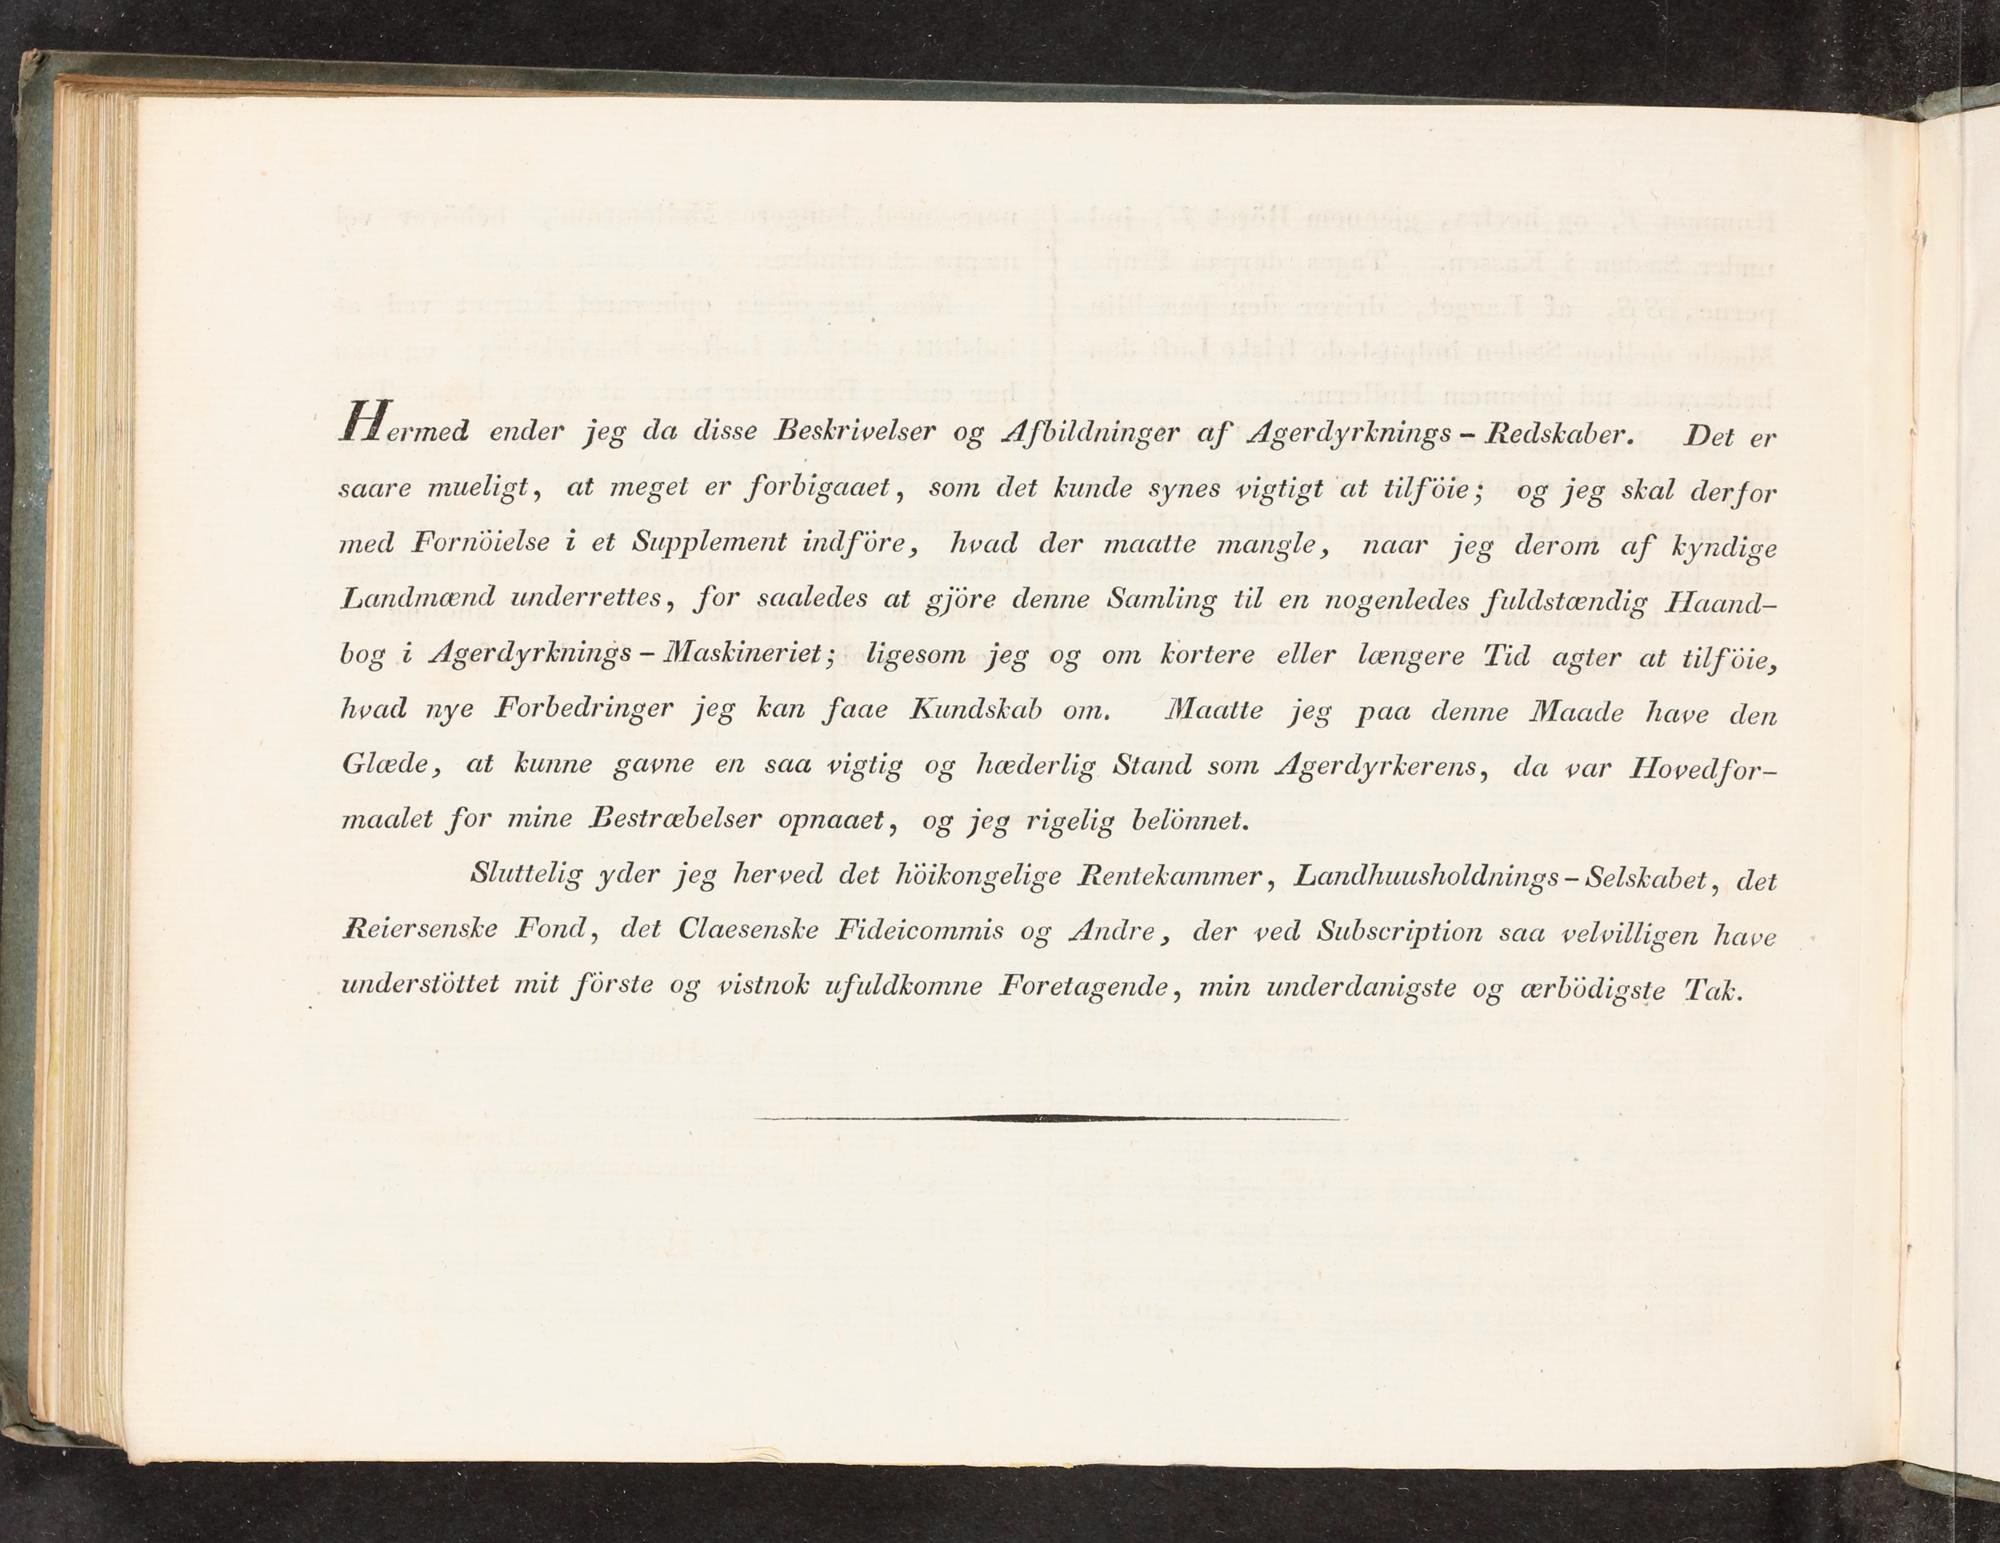 Hermed ender jeg da disse Beskrivelser og Afbildninger af Agerdyrknings-Redskaber. Det er
saare mueligt, at meget er forbigaaet, som det kunde synes vigtigt at tilföie; og jeg skal derfor
med Fornöielse i et Supplement indföre, hvad der maatte mangle, naar jeg derom af kyndige
Landmænd underrettes, for saaledes at gjöre denne Samling til en nogenledes fuldstændig Haand-
bog i Agerdyrknings-Maskineriet; ligesom jeg og om kortere eller længere Tid agter at tilföie,
hvad nye Forbedringer jeg kan faae Kundskab om. Maatte jeg paa denne Maade have den
Glæde, at kunne gavne en saa vigtig og hæderlig Stand som Agerdyrkerens, da var Hovedfor-
maalet for mine Bestræbelser opnaaet, og jeg rigelig belönnet.
Sluttelig yder jeg herved det höikongelige Rentekammer, Landhuusholdnings-Selskabet, det
Reiersenske Fond, det Claesenske Fideicommis og Andre, der ved Subscription saa velvilligen have
understöttet mit förste og vistnok ufuldkomne Foretagende, min underdanigste og ærbödigste Tak.